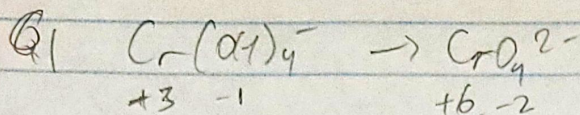 Q1 Cr(OH)₄⁻ → CrO₄²⁻
+3 -1 +6 -2